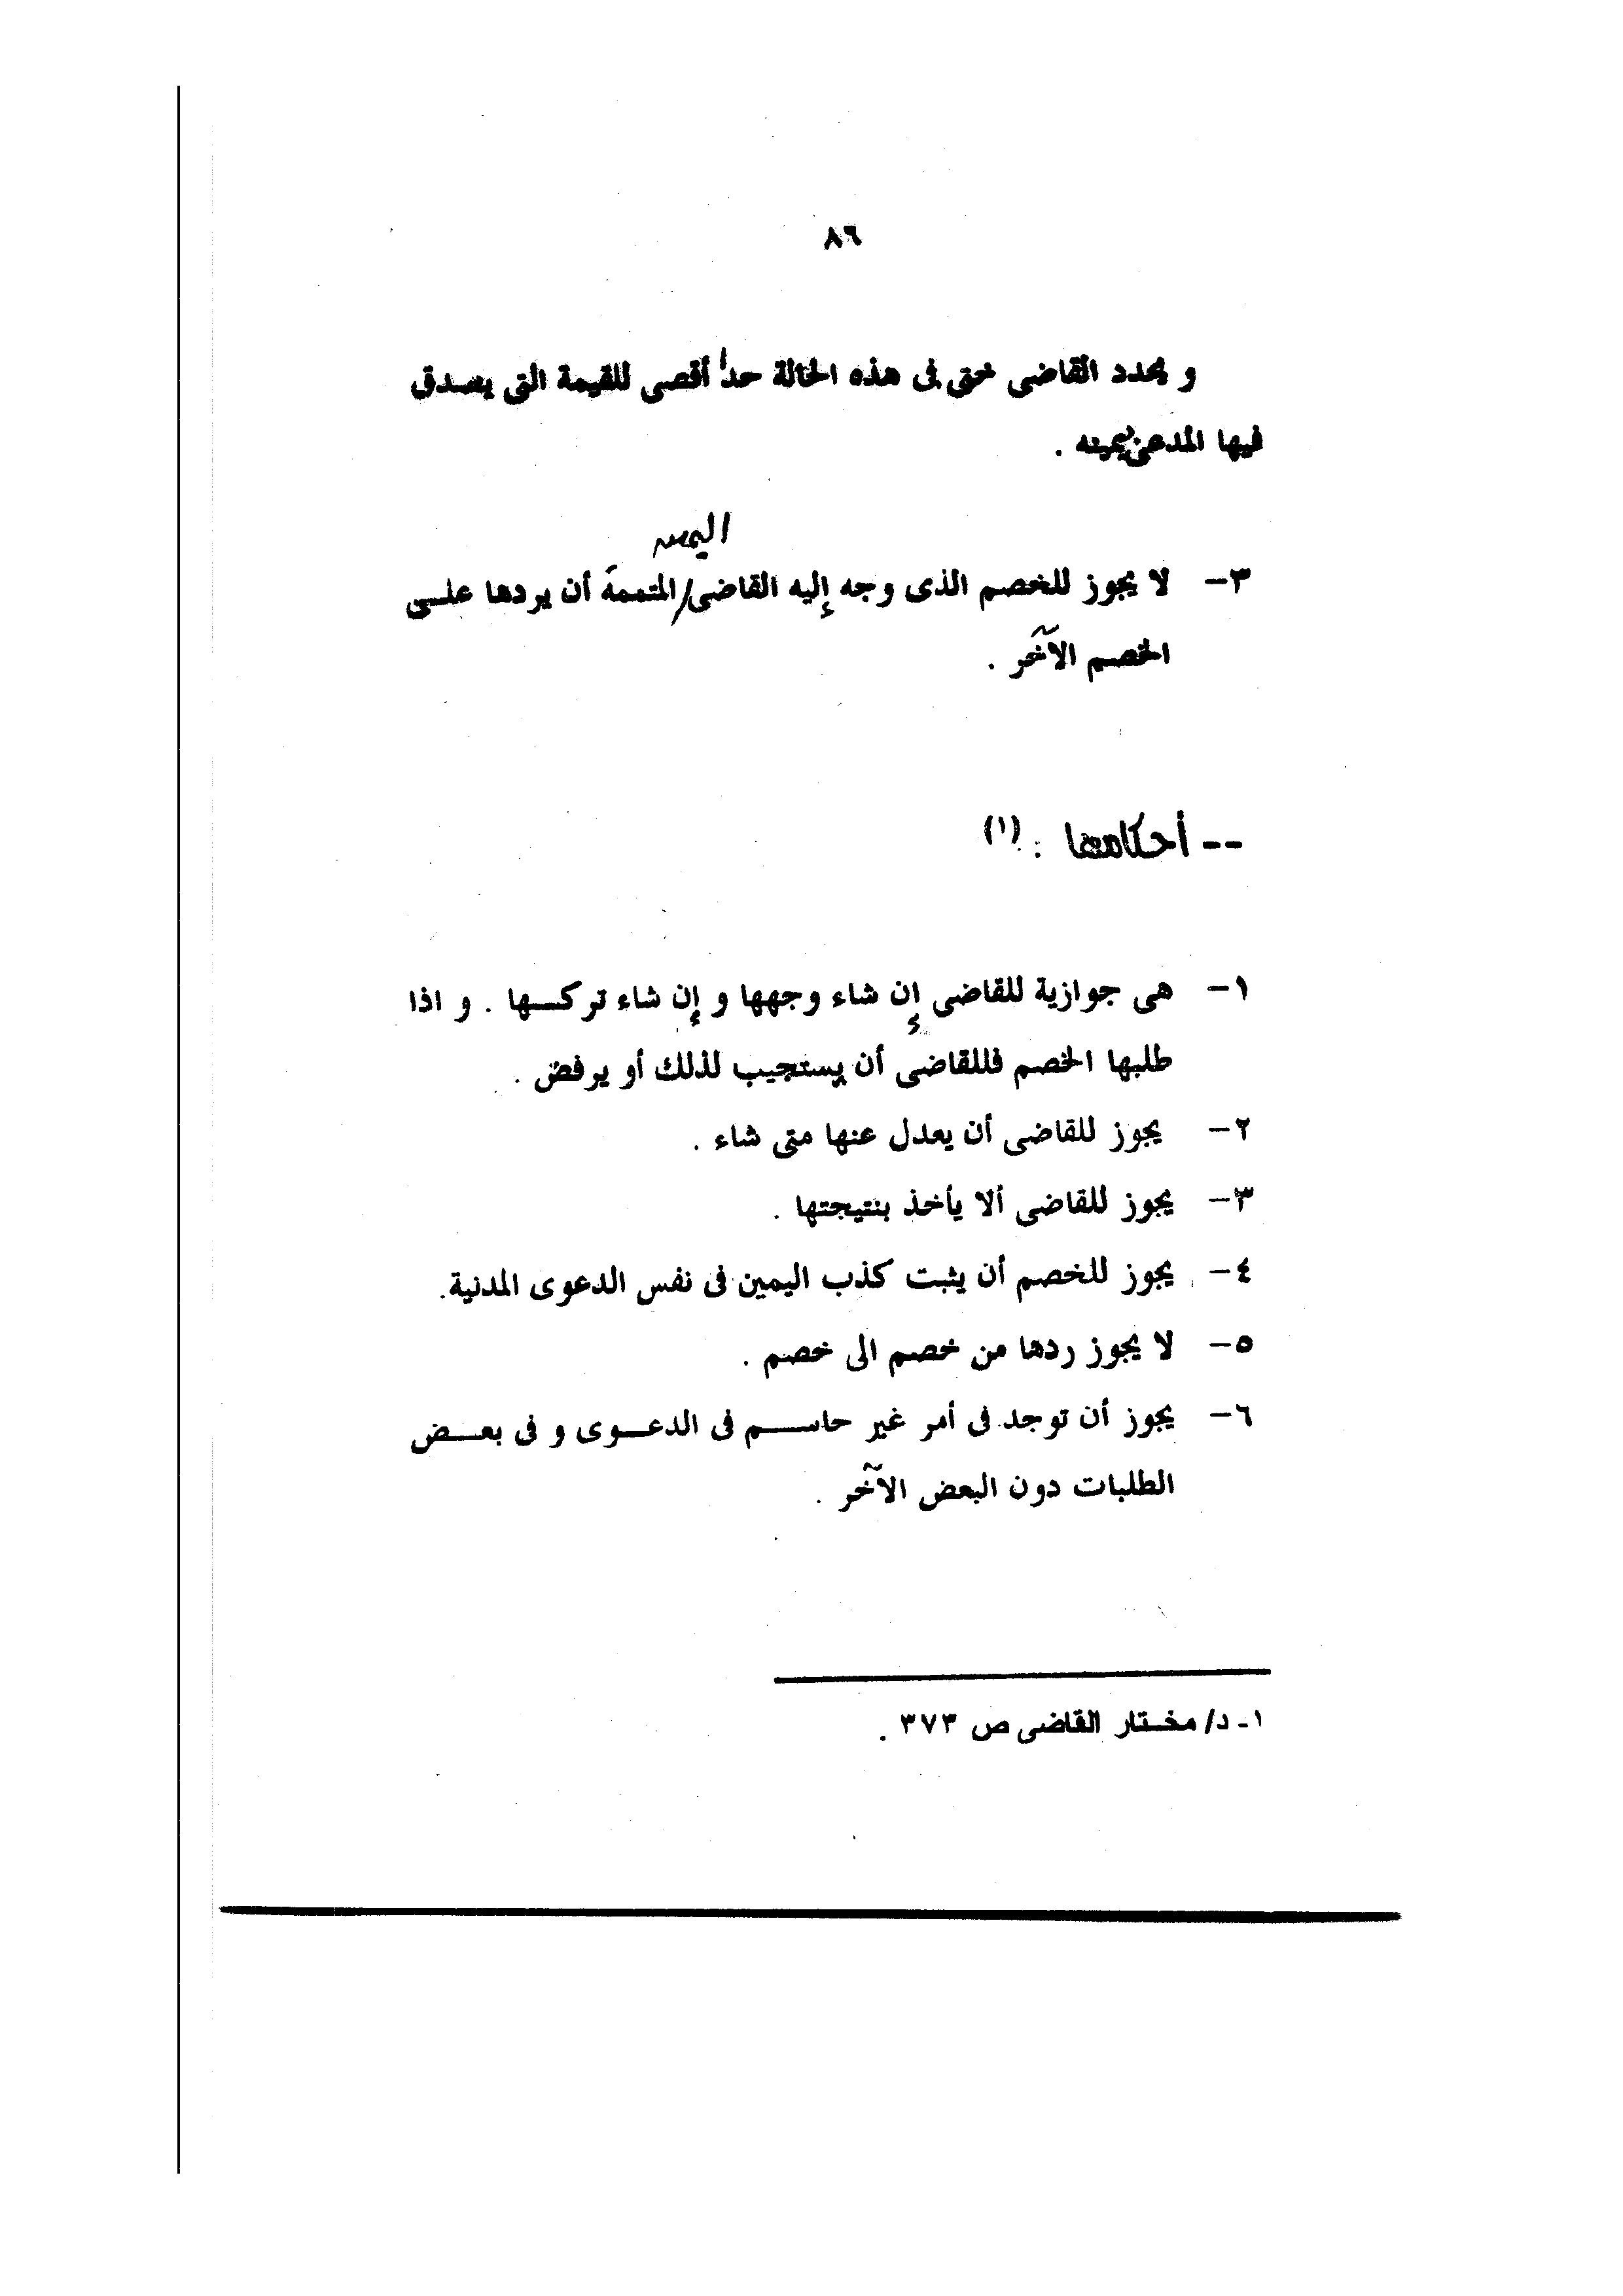 ٨٦
و يحدد القاضى حتى فى هذه الحالة حداً أقصى للقيمة التى يصدق
فيها المدعى بيمينه .
اليمين
٣- لا يجوز للخصم الذى وجه إليه القاضى/المتممة أن يردها على
الخصم الآخر .
-- أحكامها : (١)
١- هى جوازية للقاضى إن شاء وجهها و إن شاء تركها . و اذا
طلبها الخصم فللقاضى أن يستجيب لذلك أو يرفض .
٢- يجوز للقاضى أن يعدل عنها متى شاء .
٣- يجوز للقاضى ألا يأخذ بنتيجتها .
٤- يجوز للخصم أن يثبت كذب اليمين فى نفس الدعوى المدنية.
٥- لا يجوز ردها من خصم الى خصم .
٦- يجوز أن توجد فى أمر غير حاسم فى الدعوى و فى بعض
الطلبات دون البعض الآخر .
١- د/ مختار القاضى ص ٣٧٣ .